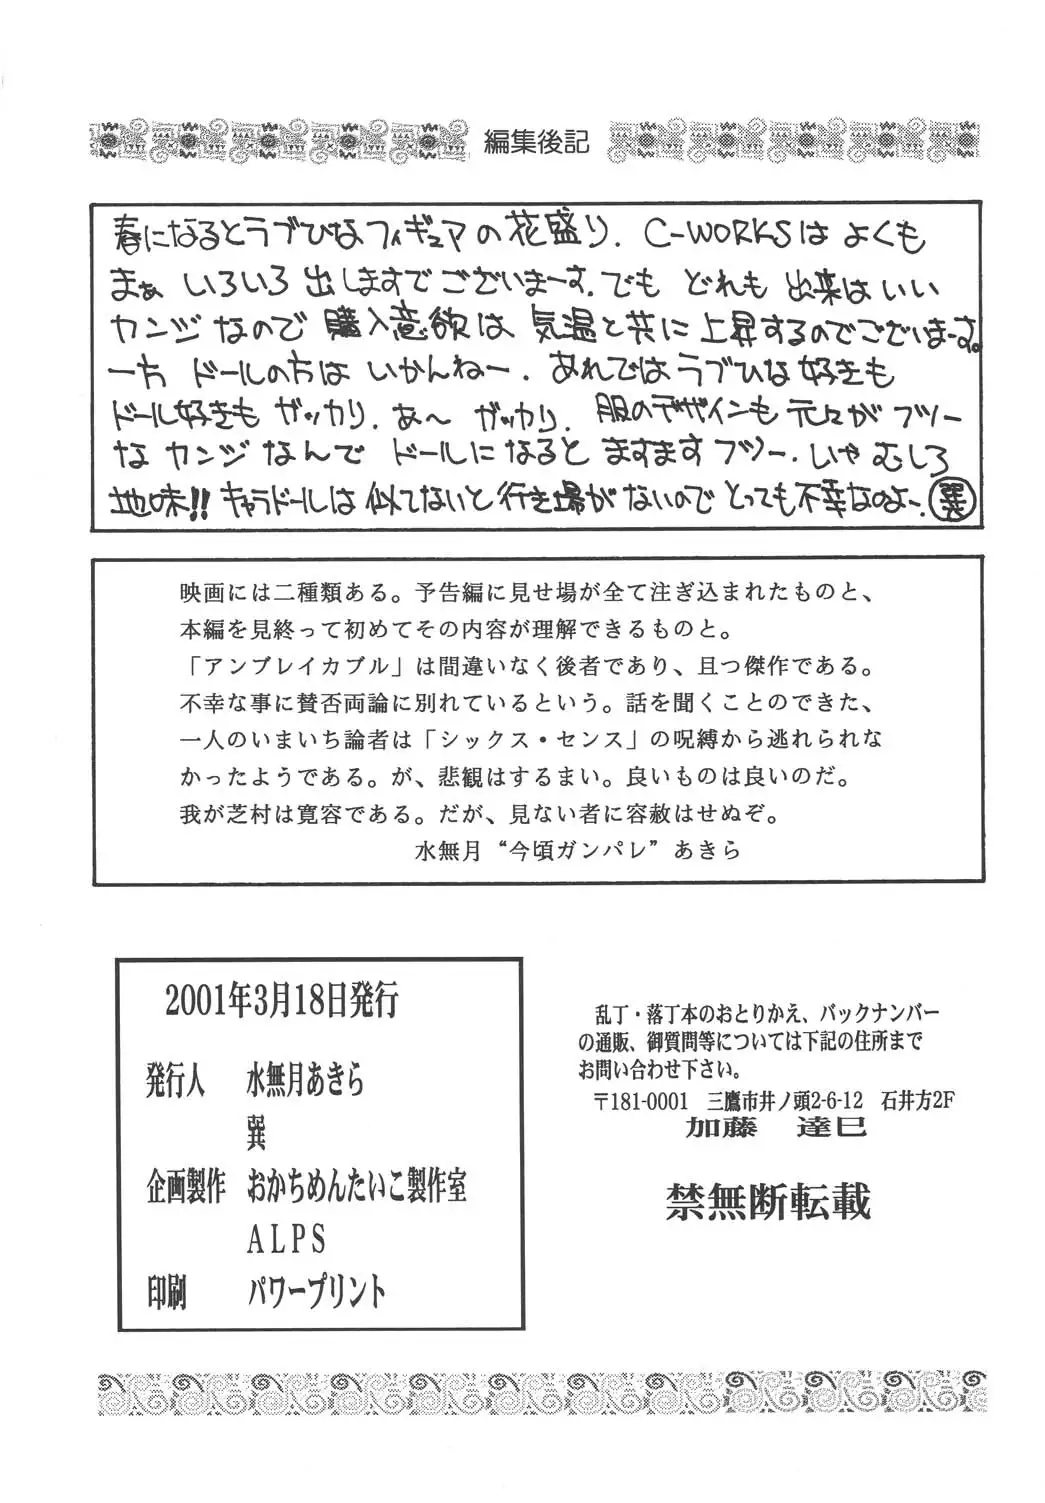 編集後記
春になるとラブひなフィギュアの花盛り. C-WORKSはよくも
まぁ いろいろ出しますでございまーす. でも どれも 出来はいい
カンジなので 購入意欲は 気温と共に上昇するのでございまーす。
一方 ドールの方は いかんねー. あれではラブひな好きも
ドール好きも ガッカリ. あ〜 ガッカリ. 服のデザインも 元々がフツー
な カンジなんで ドールになると ますますフツー. いや むしろ
地味!! キャラドールは似てないと行き場がないのでとっても不幸なのよ〜. 巽
映画には二種類ある。予告編に見せ場が全て注ぎ込まれたものと、
本編を見終って初めてその内容が理解できるものと。
「アンブレイカブル」は間違いなく後者であり、且つ傑作である。
不幸な事に賛否両論に別れているという。話を聞くことのできた、
一人のいまいち論者は「シックス・センス」の呪縛から逃れられな
かったようである。が、悲観はするまい。良いものは良いのだ。
我が芝村は寛容である。だが、見ない者に容赦はせぬぞ。
水無月“今頃ガンパレ”あきら
2001年3月18日発行
発行人 水無月あきら
巽
企画製作 おかちめんたいこ製作室
ALPS
印刷 パワープリント
乱丁・落丁本のおとりかえ、バックナンバー
の通販、御質問等については下記の住所まで
お問い合わせ下さい。
〒181-0001 三鷹市井ノ頭2-6-12 石井方2F
加藤 達巳
禁無断転載